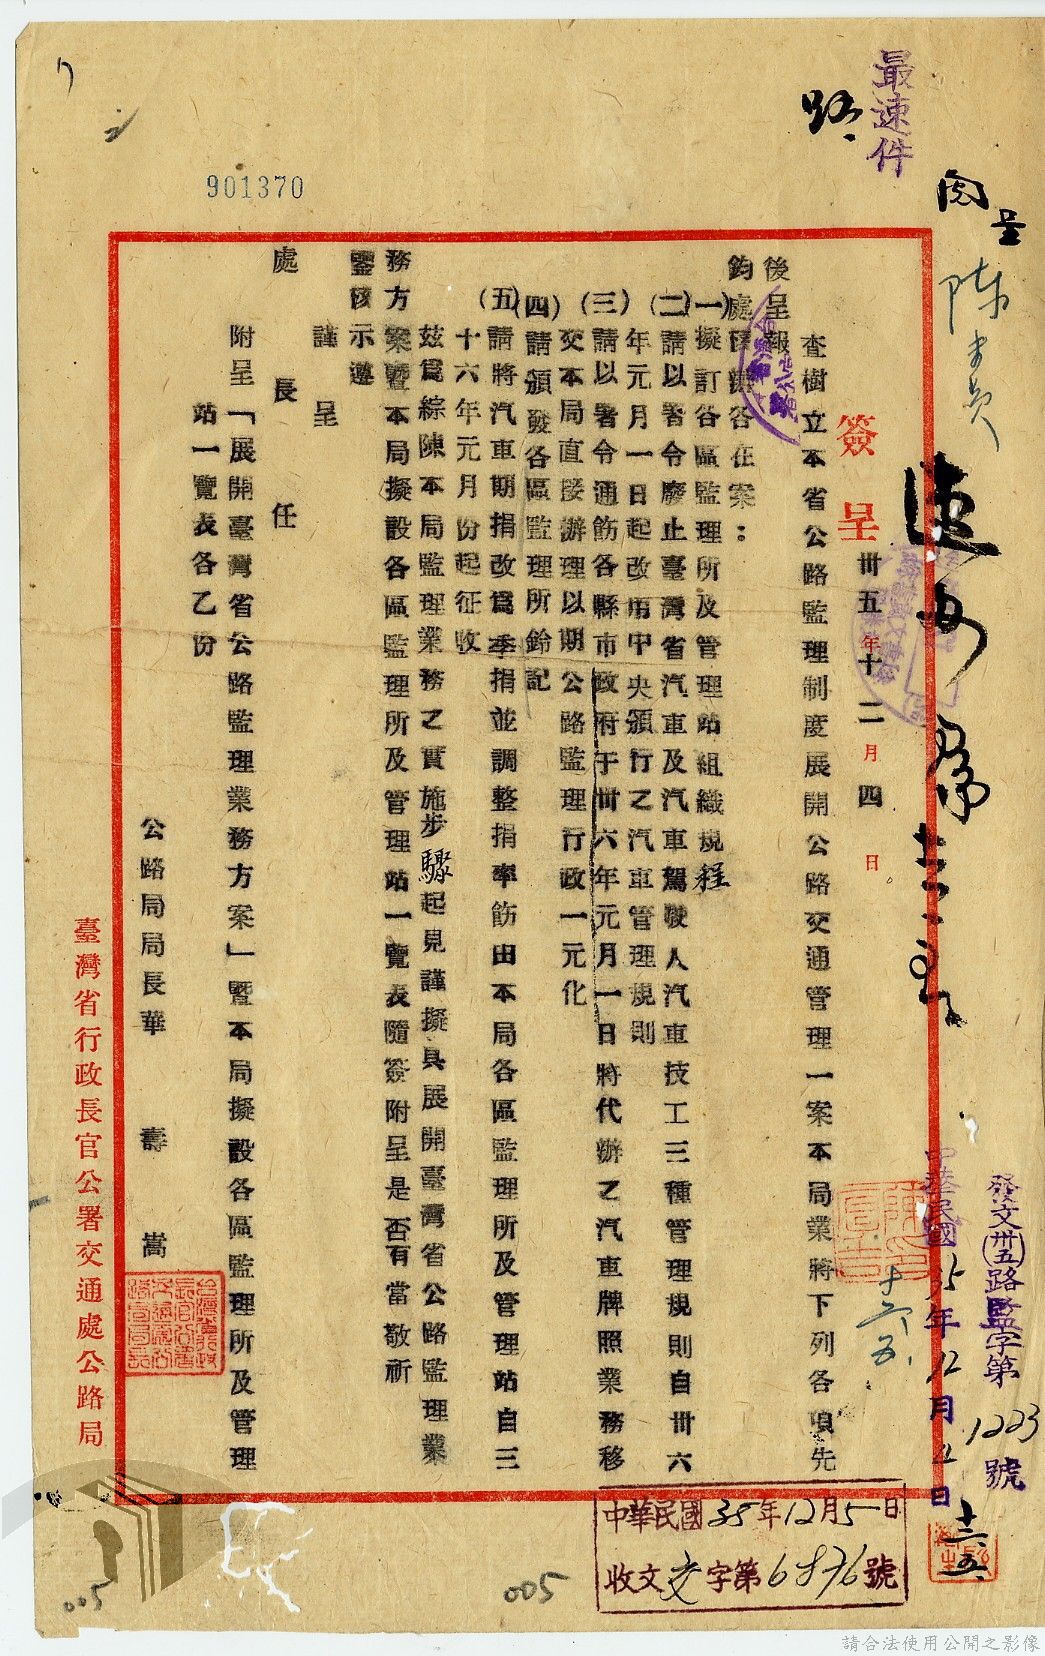 最速件
路
901370
簽呈 卅五年十二月四日
查樹立本省公路監理制度展開公路交通管理一案本局業將下列各項先
後呈報
鈞處匯辦各在案：
(一)擬訂各區監理所及管理站組織規程
(二)請以署令廢止臺灣省汽車及汽車駕駛人汽車技工三種管理規則自卅六
年元月一日起改用中央頒行之汽車管理規則
(三)請以署令通飭各縣市政府于卅六年元月一日將代辦之汽車牌照業務移
交本局直接辦理以期公路監理行政一元化
(四)請頒發各區監理所鈐記
(五)請將汽車期捐改為季捐並調整捐率飭由本局各區監理所及管理站自三
十六年元月份起征收
茲為綜陳本局監理業務之實施步驟起見謹擬具展開臺灣省公路監理業
務方案暨本局擬設各區監理所及管理站一覽表隨簽附呈是否有當敬祈
鑒核示遵
謹呈
處長任
附呈「展開臺灣省公路監理業務方案」暨本局擬設各區監理所及管理
站一覽表各乙份
公路局局長華壽嵩
臺灣省行政長官公署交通處公路局
發文(卅五)路監字第1223號
中華民國35年12月5日
十二、五、
中華民國35年12月5日
收文交字第6876號
005
005
請合法使用公開之影像